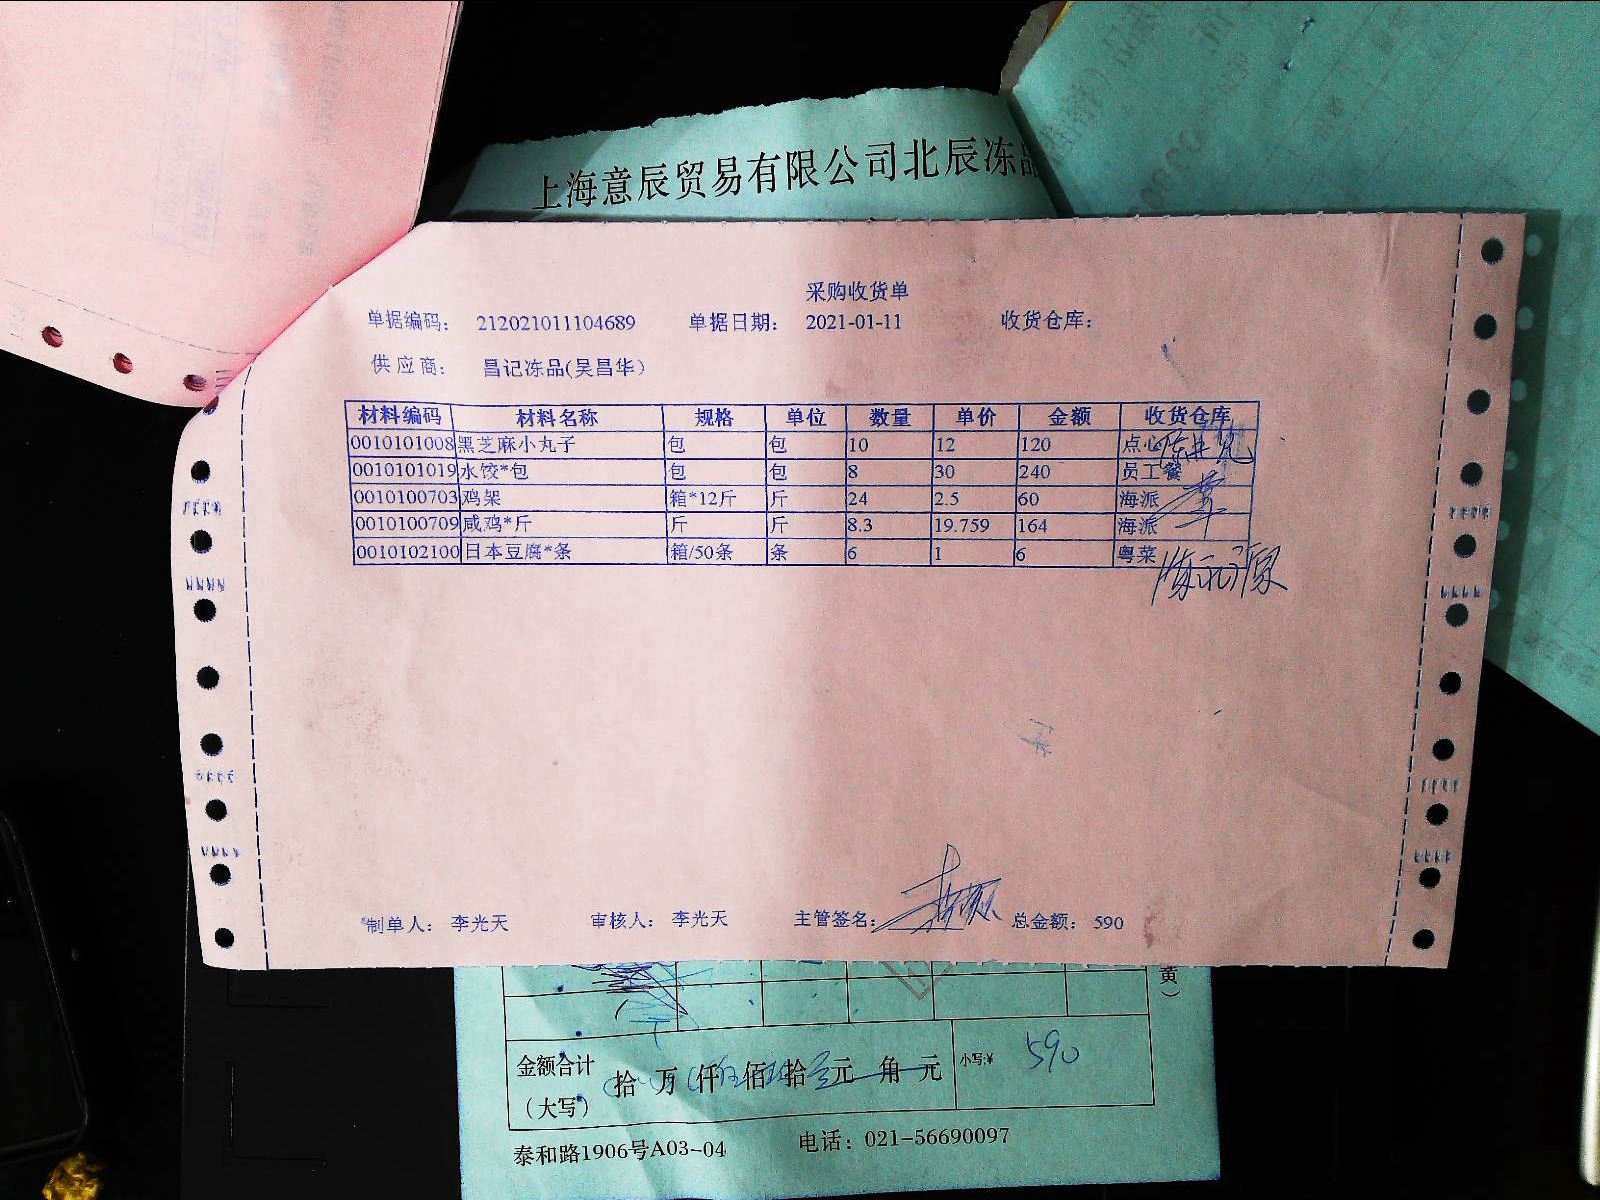 上海意辰贸易有限公司北辰冻品
采购收货单
单据编码： 212021011104689 单据日期： 2021-01-11 收货仓库：
供应商： 昌记冻品(吴昌华)
材料编码 材料名称 规格 单位 数量 单价 金额 收货仓库
0010101008 黑芝麻小丸子 包 包 10 12 120 点心
0010101019 水饺*包 包 包 8 30 240 员工餐
0010100703 鸡架 箱*12斤 斤 24 2.5 60 海派
0010100709 咸鸡*斤 斤 斤 8.3 19.759 164 海派
0010102100 日本豆腐*条 箱/50条 条 6 1 6 粤菜
制单人： 李光天 审核人： 李光天 主管签名： 总金额： 590
黄）
金额合计（大写） 拾 万 仟 佰 拾 元 角 元 小写:¥ 590
泰和路1906号A03-04 电话：021-56690097